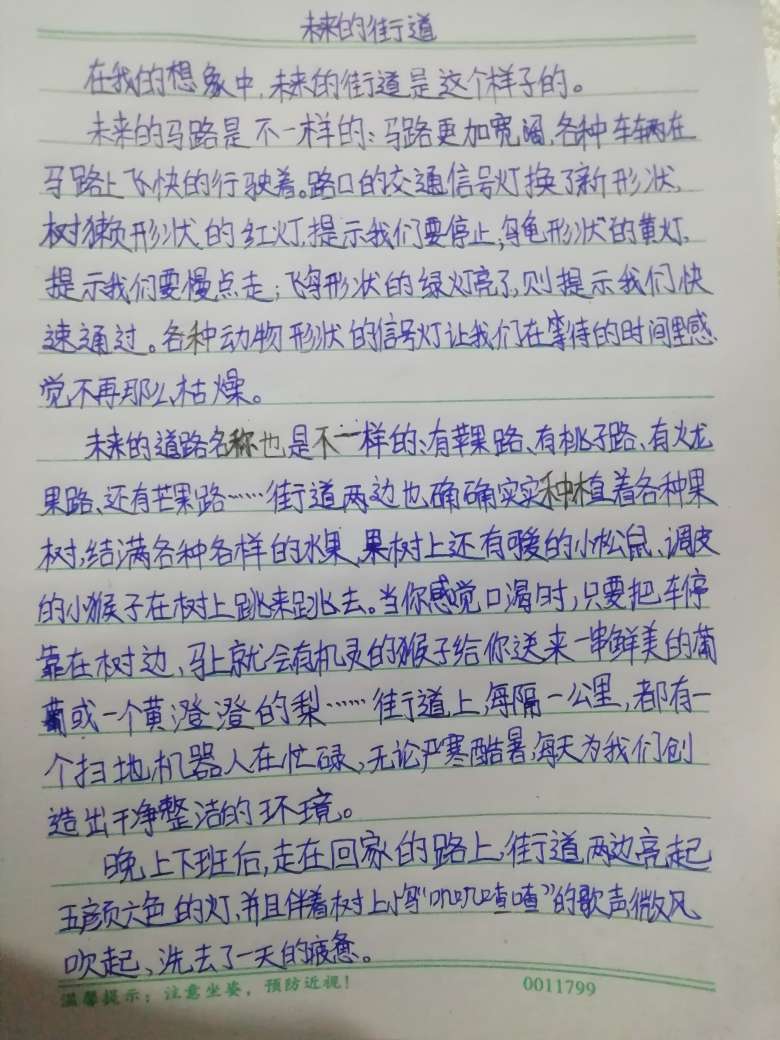 未来的街道
在我的想象中,未来的街道是这个样子的。
未来的马路是不一样的:马路更加宽阔,各种车辆在
马路上飞快的行驶着。路口的交通信号灯换了新形状,
树獭形状的红灯,提示我们要停止;乌龟形状的黄灯,
提示我们要慢点走;飞鸟形状的绿灯亮了,则提示我们快
速通过。各种动物形状的信号灯让我们在等待的时间里感
觉不再那么枯燥。
未来的道路名称也是不一样的、有苹果路、有桃子路、有火龙
果路、还有芒果路……街道两边也确确实实种植着各种果
树,结满各种各样的水果,果树上还有可爱的小松鼠、调皮
的小猴子在树上跳来跳去。当你感觉口渴时,只要把车停
靠在树边、马上就会有机灵的猴子给你送来一串鲜美的葡
萄或一个黄澄澄的梨……街道上,每隔一公里,都有一
个扫地机器人在忙碌,无论严寒酷暑,每天为我们创
造出干净整洁的环境。
晚上下班后,走在回家的路上,街道两边亮起
五颜六色的灯,并且伴着树上小鸟“叽叽喳喳”的歌声,微风
吹起、洗去了一天的疲惫。
温馨提示:注意坐姿,预防近视!
0011799